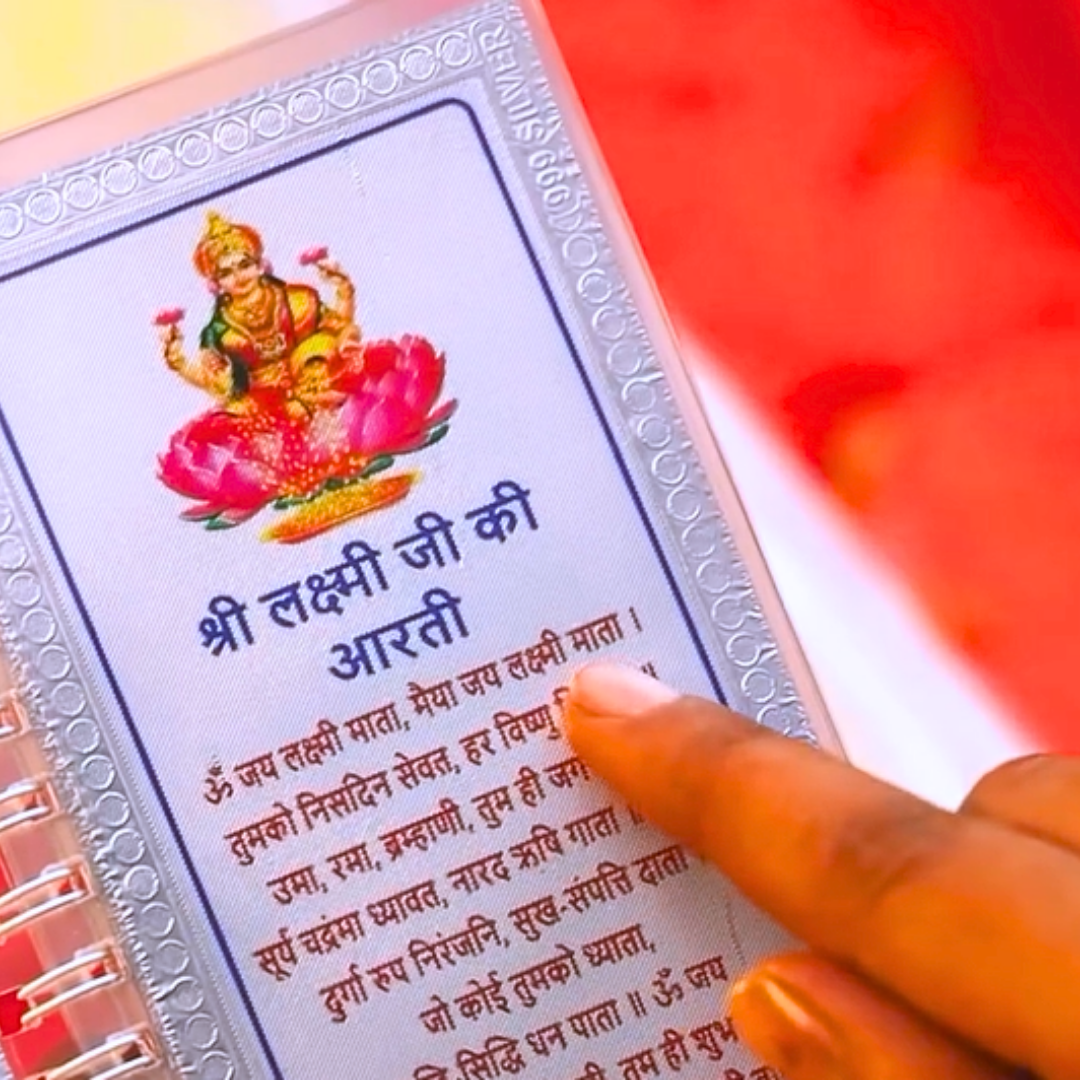 SILVER 999
श्री लक्ष्मी जी की
आरती
ॐ जय लक्ष्मी माता, मैया जय लक्ष्मी माता ।
तुमको निसदिन सेवत, हर विष्णु ॥
उमा, रमा, ब्रम्हाणी, तुम ही
सूर्य चद्रंमा ध्यावत, नारद ऋषि गाता ॥
दुर्गा रुप निरंजनि, सुख-संपत्ति दाता
जो कोई तुमको ध्याता,
सिद्धि धन पाता ॥ ॐ जय
तुम ही शुभ